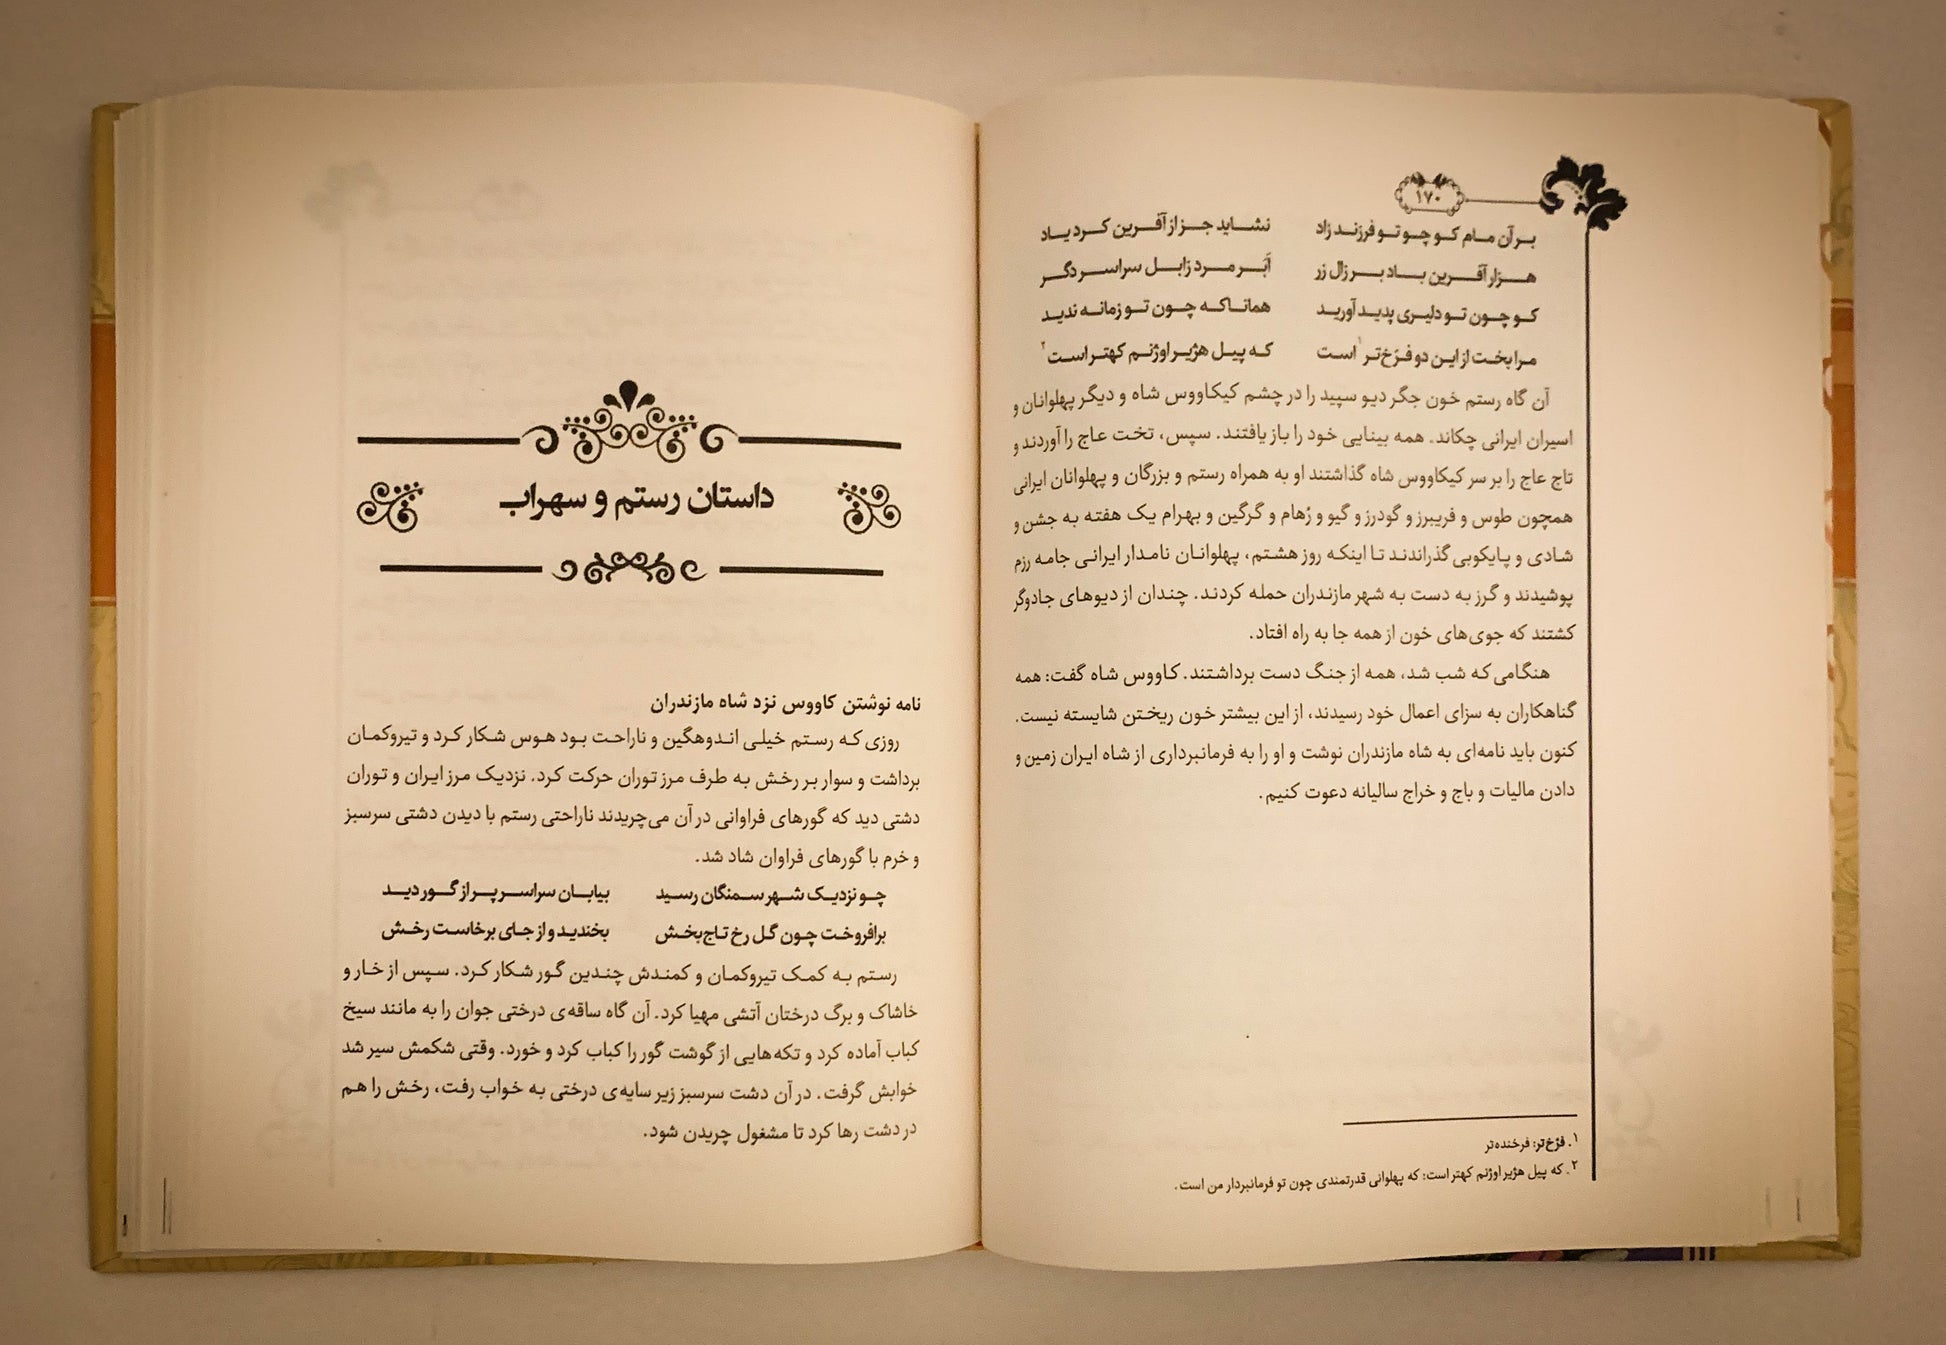 ۱۷۰
بر آن مام کو چو تو فرزند زاد نشاید جز از آفرین کرد یاد
هزار آفرین باد بر زال زر اَبَر مرد زابل سراسر دگر
کو چون تو دلیری پدید آورید همانا که چون تو زمانه ندید
مرا بخت از این دو فرّخ‌تر۱ است که پیل هژبر اوژنم کهتر است۲
آن گاه رستم خون جگر دیو سپید را در چشم کیکاووس شاه و دیگر پهلوانان و
اسیران ایرانی چکاند. همه بینایی خود را باز یافتند. سپس، تخت عاج را آوردند و
تاج عاج را بر سر کیکاووس شاه گذاشتند او به همراه رستم و بزرگان و پهلوانان ایرانی
همچون طوس و فریبرز و گودرز و گیو و رُهام و گرگین و بهرام یک هفته به جشن و
شادی و پایکوبی گذراندند تا اینکه روز هشتم، پهلوانان نامدار ایرانی جامه رزم
پوشیدند و گرز به دست به شهر مازندران حمله کردند. چندان از دیوهای جادوگر
کشتند که جوی‌های خون از همه جا به راه افتاد.
هنگامی که شب شد، همه از جنگ دست برداشتند. کاووس شاه گفت: همه
گناهکاران به سزای اعمال خود رسیدند، از این بیشتر خون ریختن شایسته نیست.
کنون باید نامه‌ای به شاه مازندران نوشت و او را به فرمانبرداری از شاه ایران زمین و
دادن مالیات و باج و خراج سالیانه دعوت کنیم.
۱. فرّخ‌تر: فرخنده‌تر
۲. که پیل هژبر اوژنم کهتر است: که پهلوانی قدرتمندی چون تو فرمانبردار من است.
داستان رستم و سهراب
نامه نوشتن کاووس نزد شاه مازندران
روزی که رستم خیلی اندوهگین و ناراحت بود هوس شکار کرد و تیروکمان
برداشت و سوار بر رخش به طرف مرز توران حرکت کرد. نزدیک مرز ایران و توران
دشتی دید که گورهای فراوانی در آن می‌چریدند ناراحتی رستم با دیدن دشتی سرسبز
و خرم با گورهای فراوان شاد شد.
چو نزدیک شهر سمنگان رسید بیابان سراسر پر از گور دید
برافروخت چون گل رخ تاج‌بخش بخندید و از جای برخاست رخش
رستم به کمک تیروکمان و کمندش چندین گور شکار کرد. سپس از خار و
خاشاک و برگ درختان آتشی مهیا کرد. آن گاه ساقه‌ی درختی جوان را به مانند سیخ
کباب آماده کرد و تکه‌هایی از گوشت گور را کباب کرد و خورد. وقتی شکمش سیر شد
خوابش گرفت. در آن دشت سرسبز زیر سایه‌ی درختی به خواب رفت، رخش را هم
در دشت رها کرد تا مشغول چریدن شود.